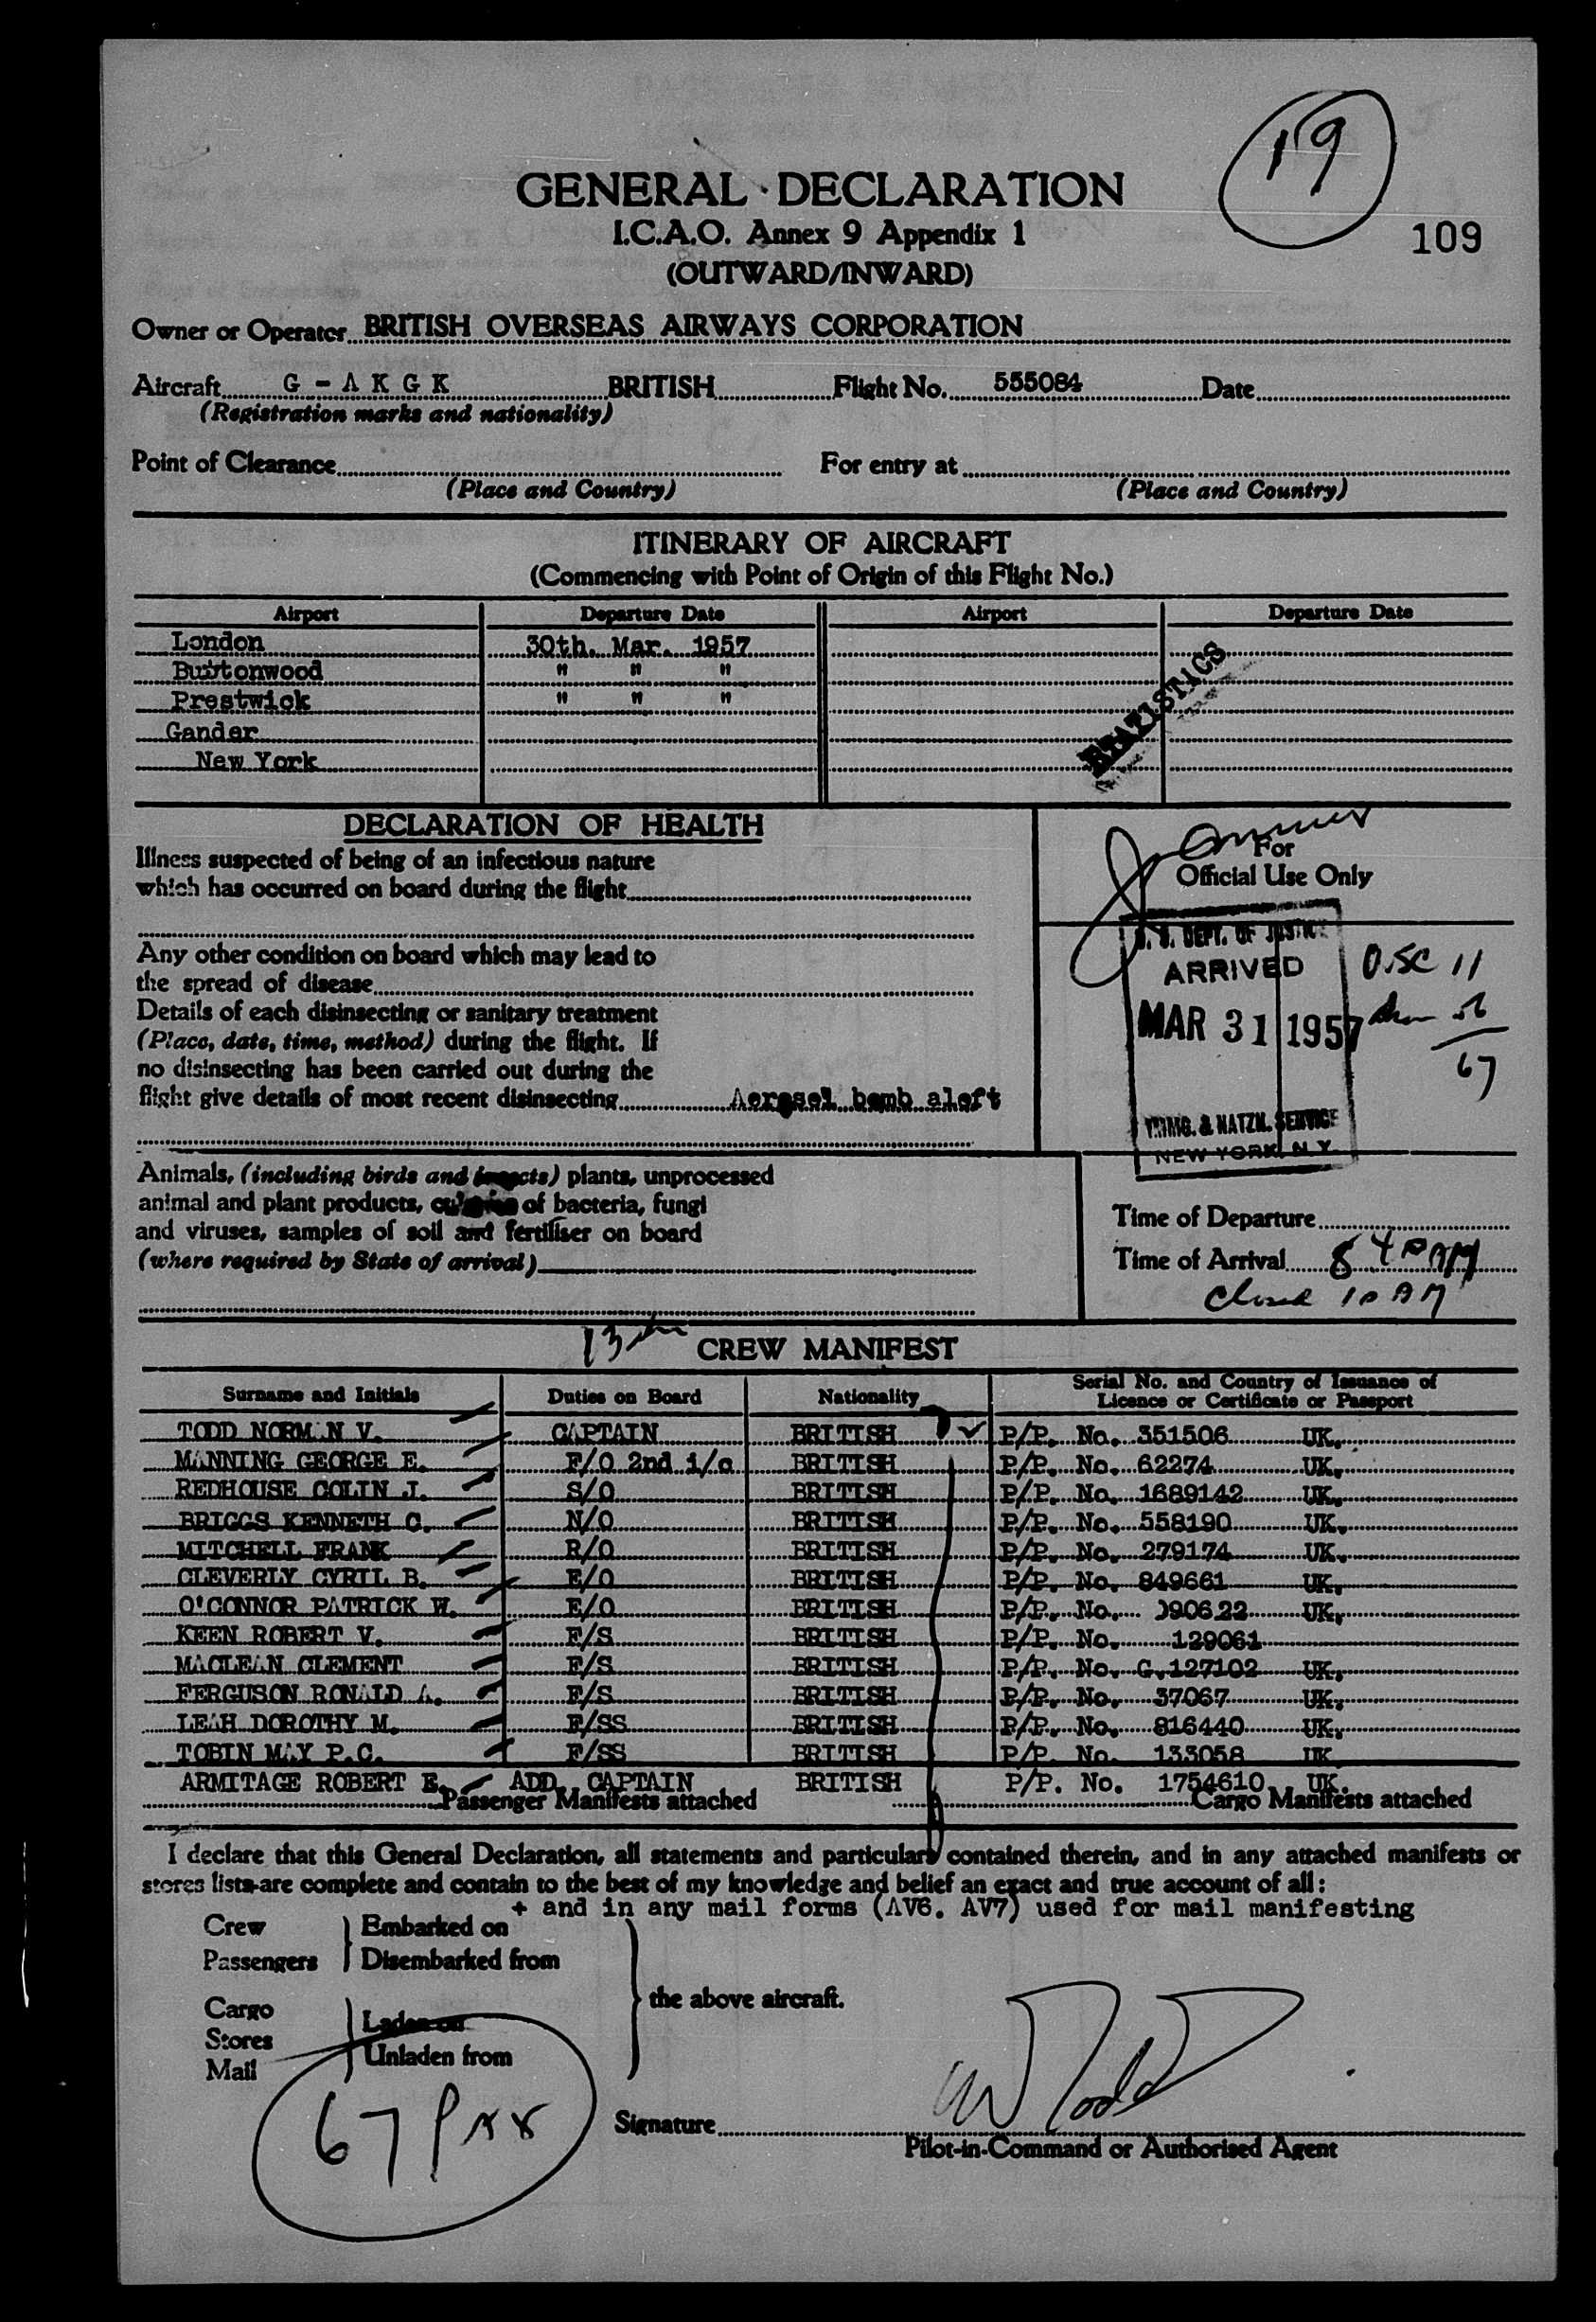 19
GENERAL DECLARATION
I.C.A.O. Annex 9 Appendix 1
109
(OUTWARD/INWARD)
Owner or Operator BRITISH OVERSEAS AIRWAYS CORPORATION
Aircraft G - A K G K BRITISH Flight No. 555084 Date
(Registration marks and nationality)
Point of Clearance For entry at
(Place and Country) (Place and Country)
ITINERARY OF AIRCRAFT
(Commencing with Point of Origin of this Flight No.)
Airport Departure Date Airport Departure Date
London 30th. Mar. 1957
Burtonwood " " "
Prestwick " " "
Gander
New York
STATISTICS
DECLARATION OF HEALTH
Illness suspected of being of an infectious nature
which has occurred on board during the flight
For
Official Use Only
Any other condition on board which may lead to
the spread of disease
Details of each disinsecting or sanitary treatment
(Place, date, time, method) during the flight. If
no disinsecting has been carried out during the
flight give details of most recent disinsecting Aerosol bomb aloft
U. S. DEPT. OF JUSTICE
ARRIVED
MAR 31 1957
IMMG. & NATZN. SERVICE
NEW YORK, N.Y.
11
56
67
Animals, (including birds and insects) plants, unprocessed
animal and plant products, cultures of bacteria, fungi
and viruses, samples of soil and fertiliser on board
(where required by State of arrival)
Time of Departure
Time of Arrival 8 40 AM
Closed 10 AM
13
CREW MANIFEST
Surname and Initials Duties on Board Nationality Serial No. and Country of Issuance of Licence or Certificate or Passport
TODD NORMAN V. CAPTAIN BRITISH P/P. No. 351506 UK.
MANNING GEORGE E. F/O 2nd i/c BRITISH P/P. No. 62274 UK.
REDHOUSE COLIN J. S/O BRITISH P/P. No. 1689142 UK.
BRIGGS KENNETH C. N/O BRITISH P/P. No. 558190 UK.
MITCHELL FRANK R/O BRITISH P/P. No. 279174 UK.
CLEVERLY CYRIL B. E/O BRITISH P/P. No. 849661 UK.
O'CONNOR PATRICK W. E/O BRITISH P/P. No. 090622 UK.
KEEN ROBERT V. F/S BRITISH P/P. No. 129061
MACLEAN CLEMENT F/S BRITISH P/P. No. G.127102 UK.
FERGUSON RONALD A. F/S BRITISH P/P. No. 37067 UK.
LEAH DOROTHY M. F/SS BRITISH P/P. No. 816440 UK.
TOBIN MAY P.C. F/SS BRITISH P/P. No. 133058 UK
ARMITAGE ROBERT E. ADD. CAPTAIN BRITISH P/P. No. 1754610 UK.
Passenger Manifests attached Cargo Manifests attached
I declare that this General Declaration, all statements and particulars contained therein, and in any attached manifests or
stores lists are complete and contain to the best of my knowledge and belief an exact and true account of all:
+ and in any mail forms (AV6. AV7) used for mail manifesting
Crew Embarked on
Passengers Disembarked from
the above aircraft.
Cargo Laden on
Stores
Mail Unladen from
67 Pax
Signature
Pilot-in-Command or Authorised Agent